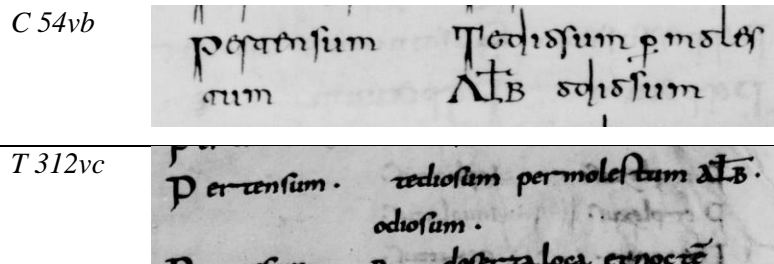 C 54vb
Pertensum Tediosum ꝑ moles
tum AƚB odiosum
T 312vc
Pertensum · tediosum permolestum AƚB ·
odiosum ·
deserta loca